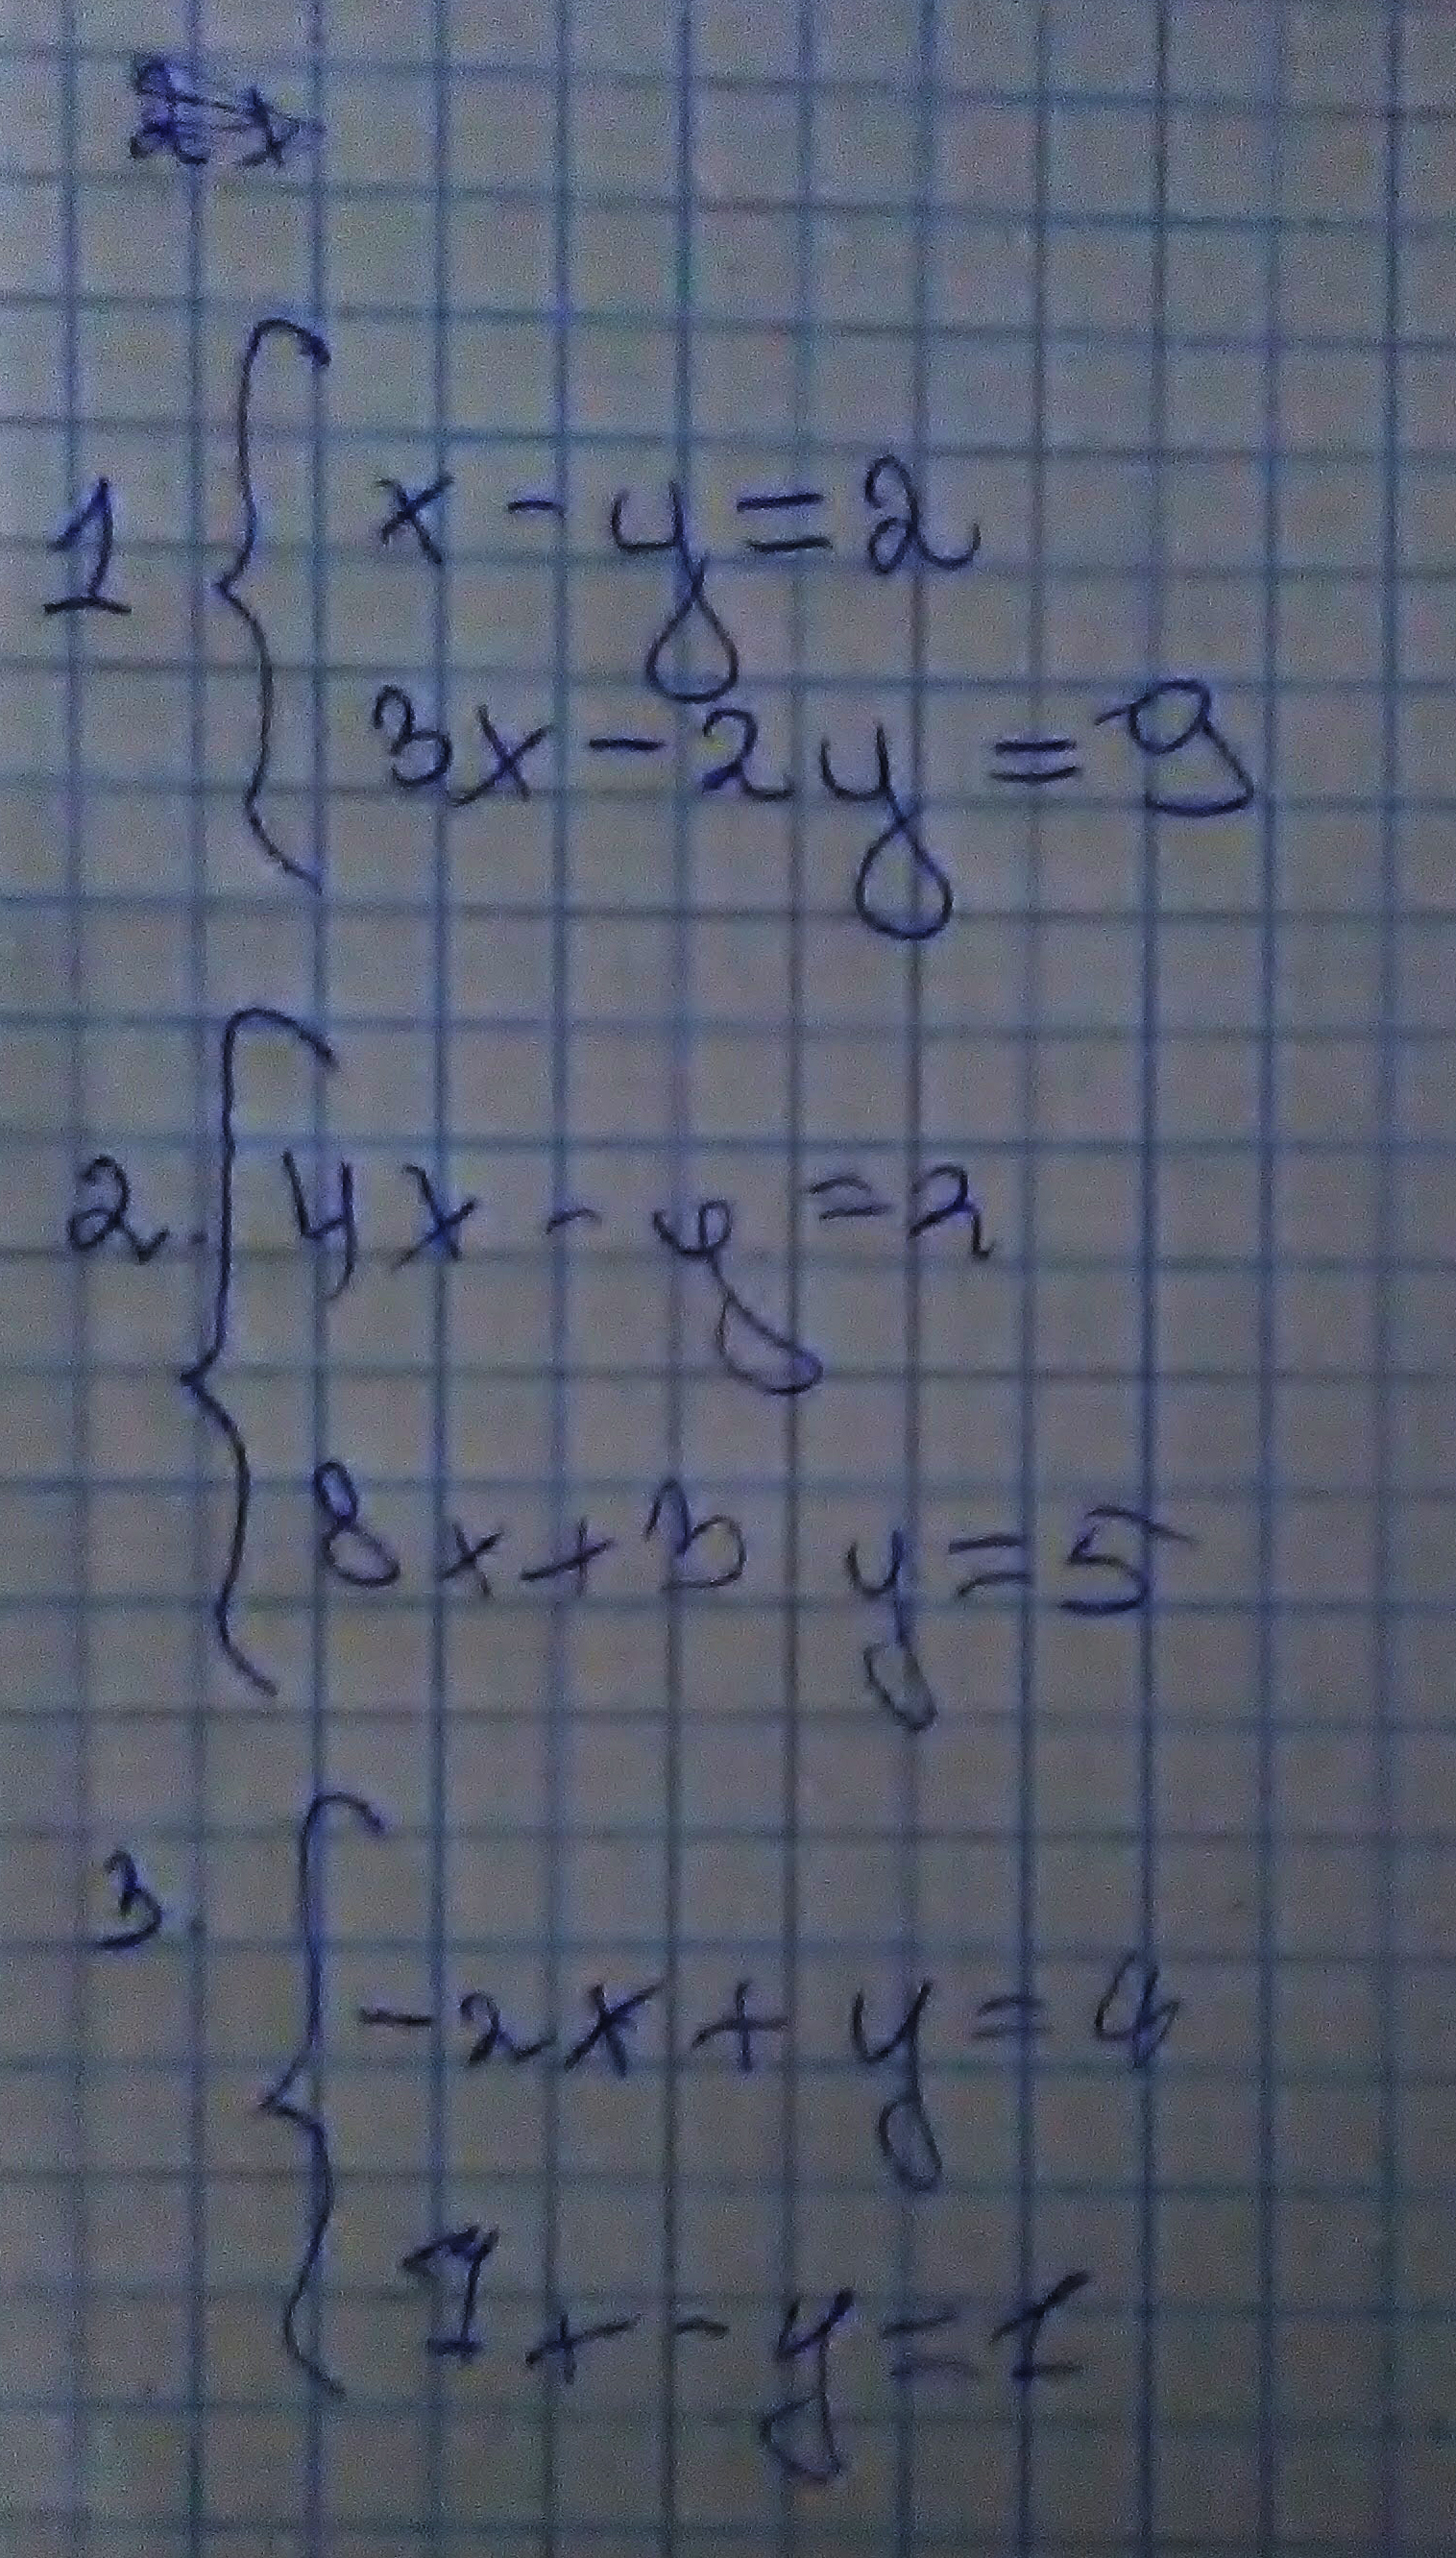 1 { x - y = 2
3x - 2y = 9
2. { 4x - y = 2
8x + 3y = 5
3. { -2x + y = 4
7x - y = 1